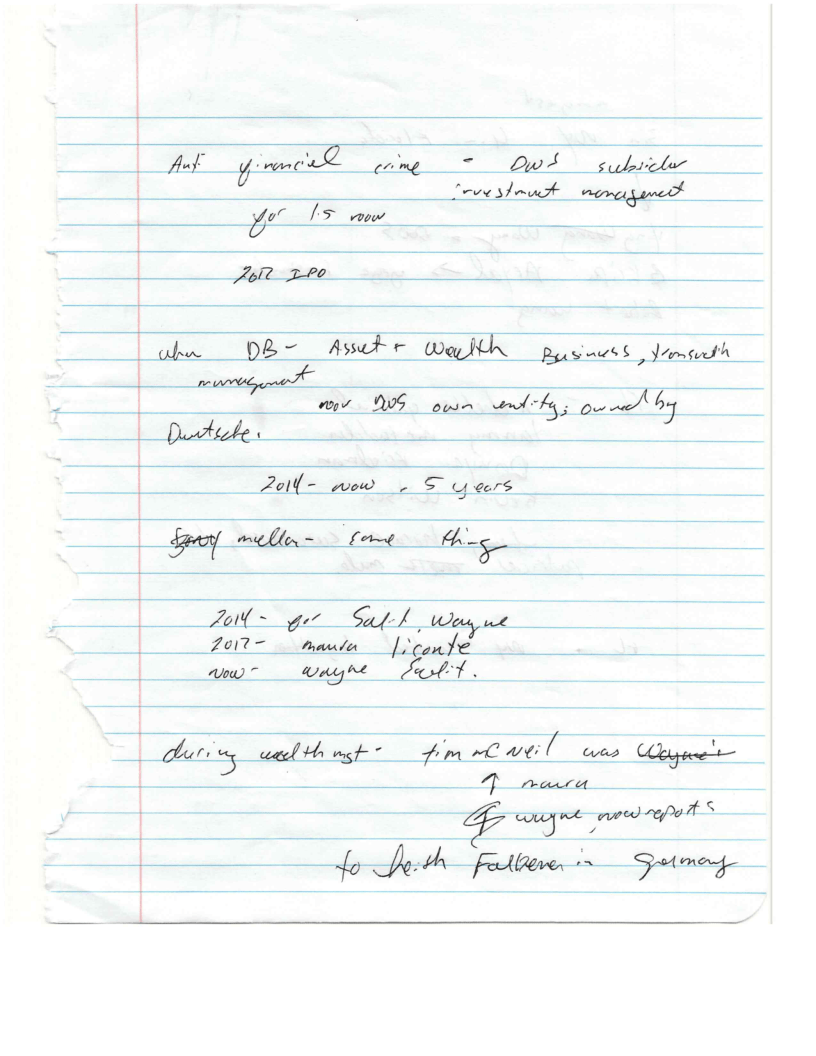 Anti financial crime - DWS subsider
investment management
for 1.5 now
2017 IPO
when DB - Asset + Wealth Business,
management
now DWS own entity; owned by
Deutsche.
2014 - now - 5 years
mellon - same thing
2014 - for Salit, Wayne
2017 - maura liconte
now - wayne Salit.
during wealth mgt - tim mcNeil was Wayne's
↑ maura
wayne now reports
to Keith Falkener in Germany